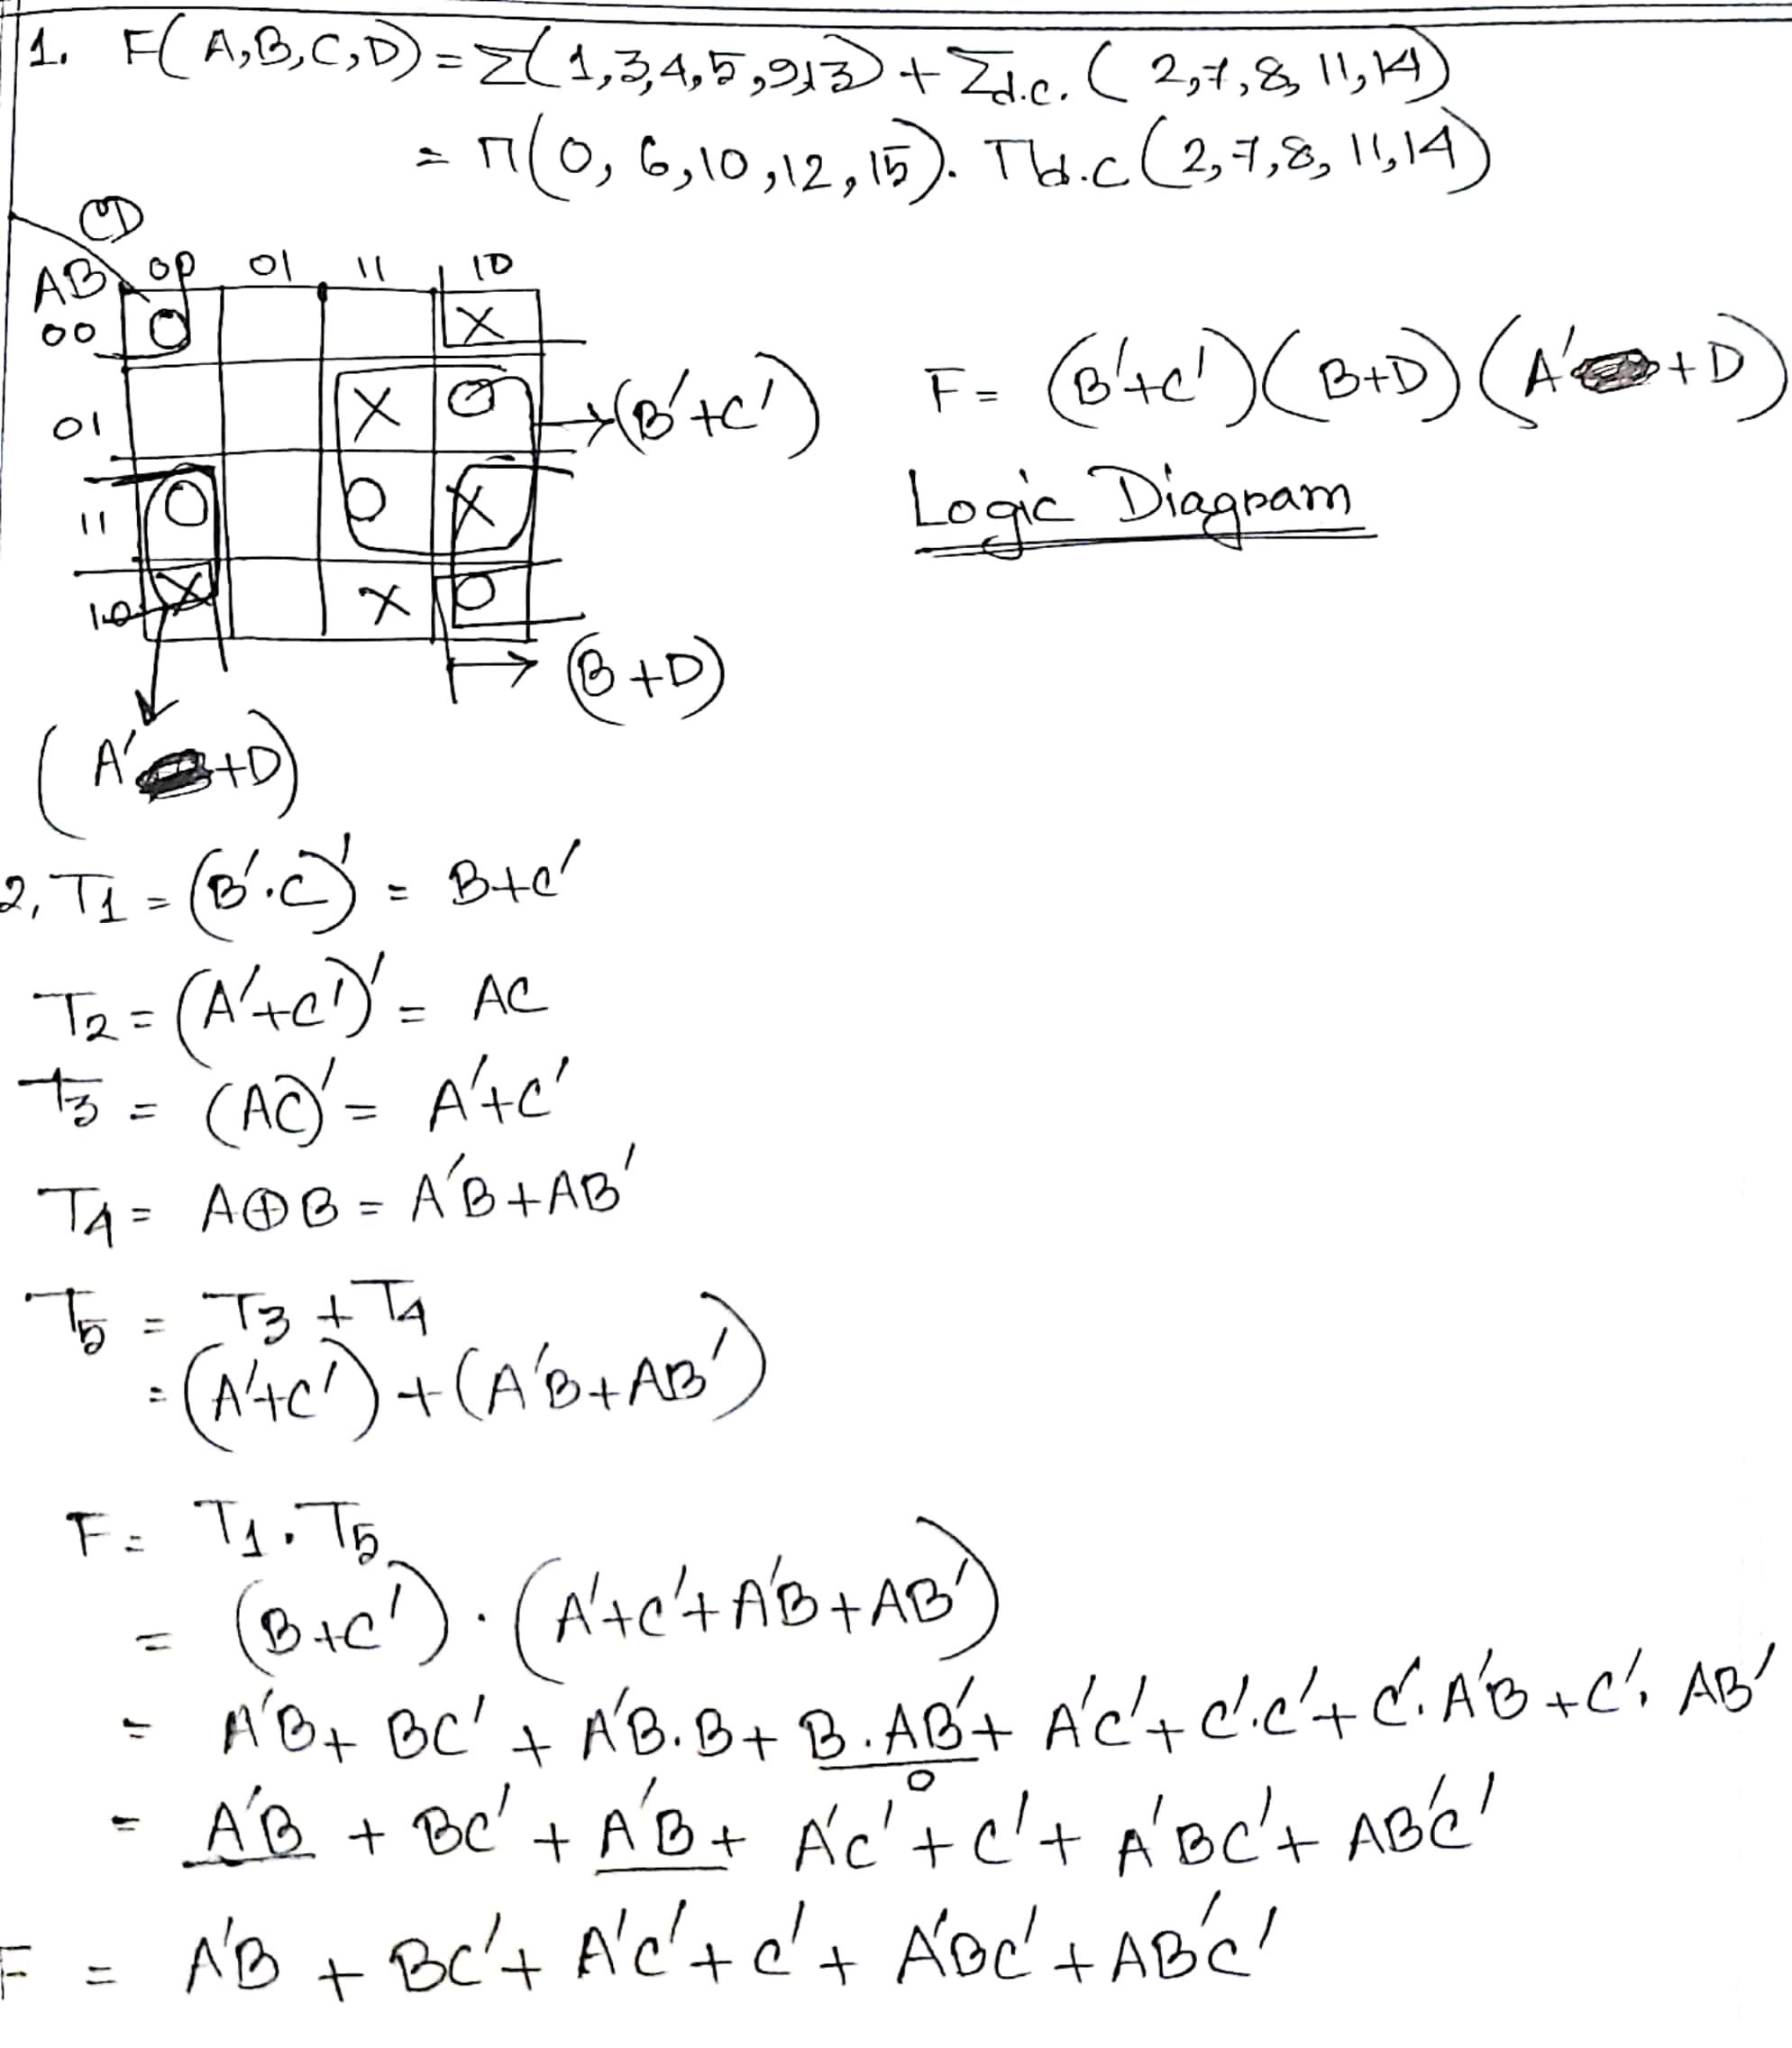 1. F(A,B,C,D) = Σ(1,3,4,5,9,13) + Σd.c. (2,7,8,11,14)
= π(0, 6,10,12,15). πd.c (2,7,8,11,14)
CD
AB 00 01 11 10
00 0 X
01 X 0 →(B'+C')
11 0 0 X
10 X X 0
→ (B+D)
(A'+D)
F = (B'+C')(B+D)(A'+D)
Logic Diagram
2. T1 = (B'.C)' = B+C'
T2 = (A'+C')' = AC
T3 = (AC)' = A'+C'
T4 = A⊕B = A'B+AB'
T5 = T3 + T4
= (A'+C') + (A'B+AB')
F = T1.T5
= (B+C') . (A'+C'+A'B+AB')
= A'B + BC' + A'B.B + B.AB' + A'C' + C'.C' + C'.A'B + C'.AB'
0
= A'B + BC' + A'B + A'C' + C' + A'BC' + AB'C'
F = A'B + BC' + A'C' + C' + A'BC' + AB'C'